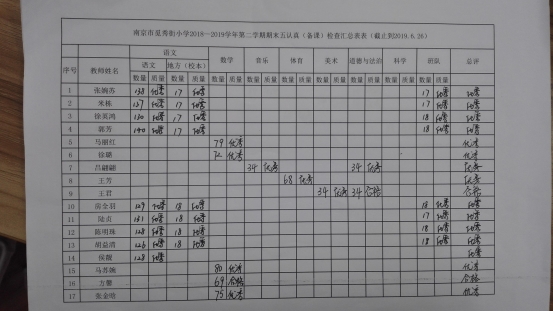 南京市觅秀街小学2018—2019学年第二学期期末五认真（备课）检查汇总表表（截止到2019.6.26）
序号 教师姓名 语文 数学 音乐 体育 美术 道德与法治 科学 班队 总评
语文 地方（校本）
数量 质量 数量 质量 数量 质量 数量 质量 数量 质量 数量 质量 数量 质量 数量 质量 数量 质量
1 张婉苏 138 优秀 17 优秀 17 优秀 优秀
2 朱栋 127 优秀 17 优秀 17 优秀 优秀
3 徐英鸿 130 优秀 17 优秀 18 优秀 优秀
4 郭芳 140 优秀 17 优秀 18 优秀 优秀
5 马丽红 79 优秀 优秀
6 徐璐 72 优秀 优秀
7 吕翩翩 34 优秀 34 优秀 优秀
8 王芳 68 优秀 优秀
9 王君 34 优秀 34 合格 合格
10 房金羽 129 优秀 18 优秀 18 优秀 优秀
11 陆贞 131 优秀 18 优秀 17 优秀 优秀
12 陈明珠 128 优秀 18 优秀 18 优秀 优秀
13 胡益清 126 优秀 18 优秀 18 优秀 优秀
14 侯靓 128 优秀 优秀
15 马苏婉 80 优秀 优秀
16 方馨 69 合格 合格
17 张金晗 75 优秀 优秀